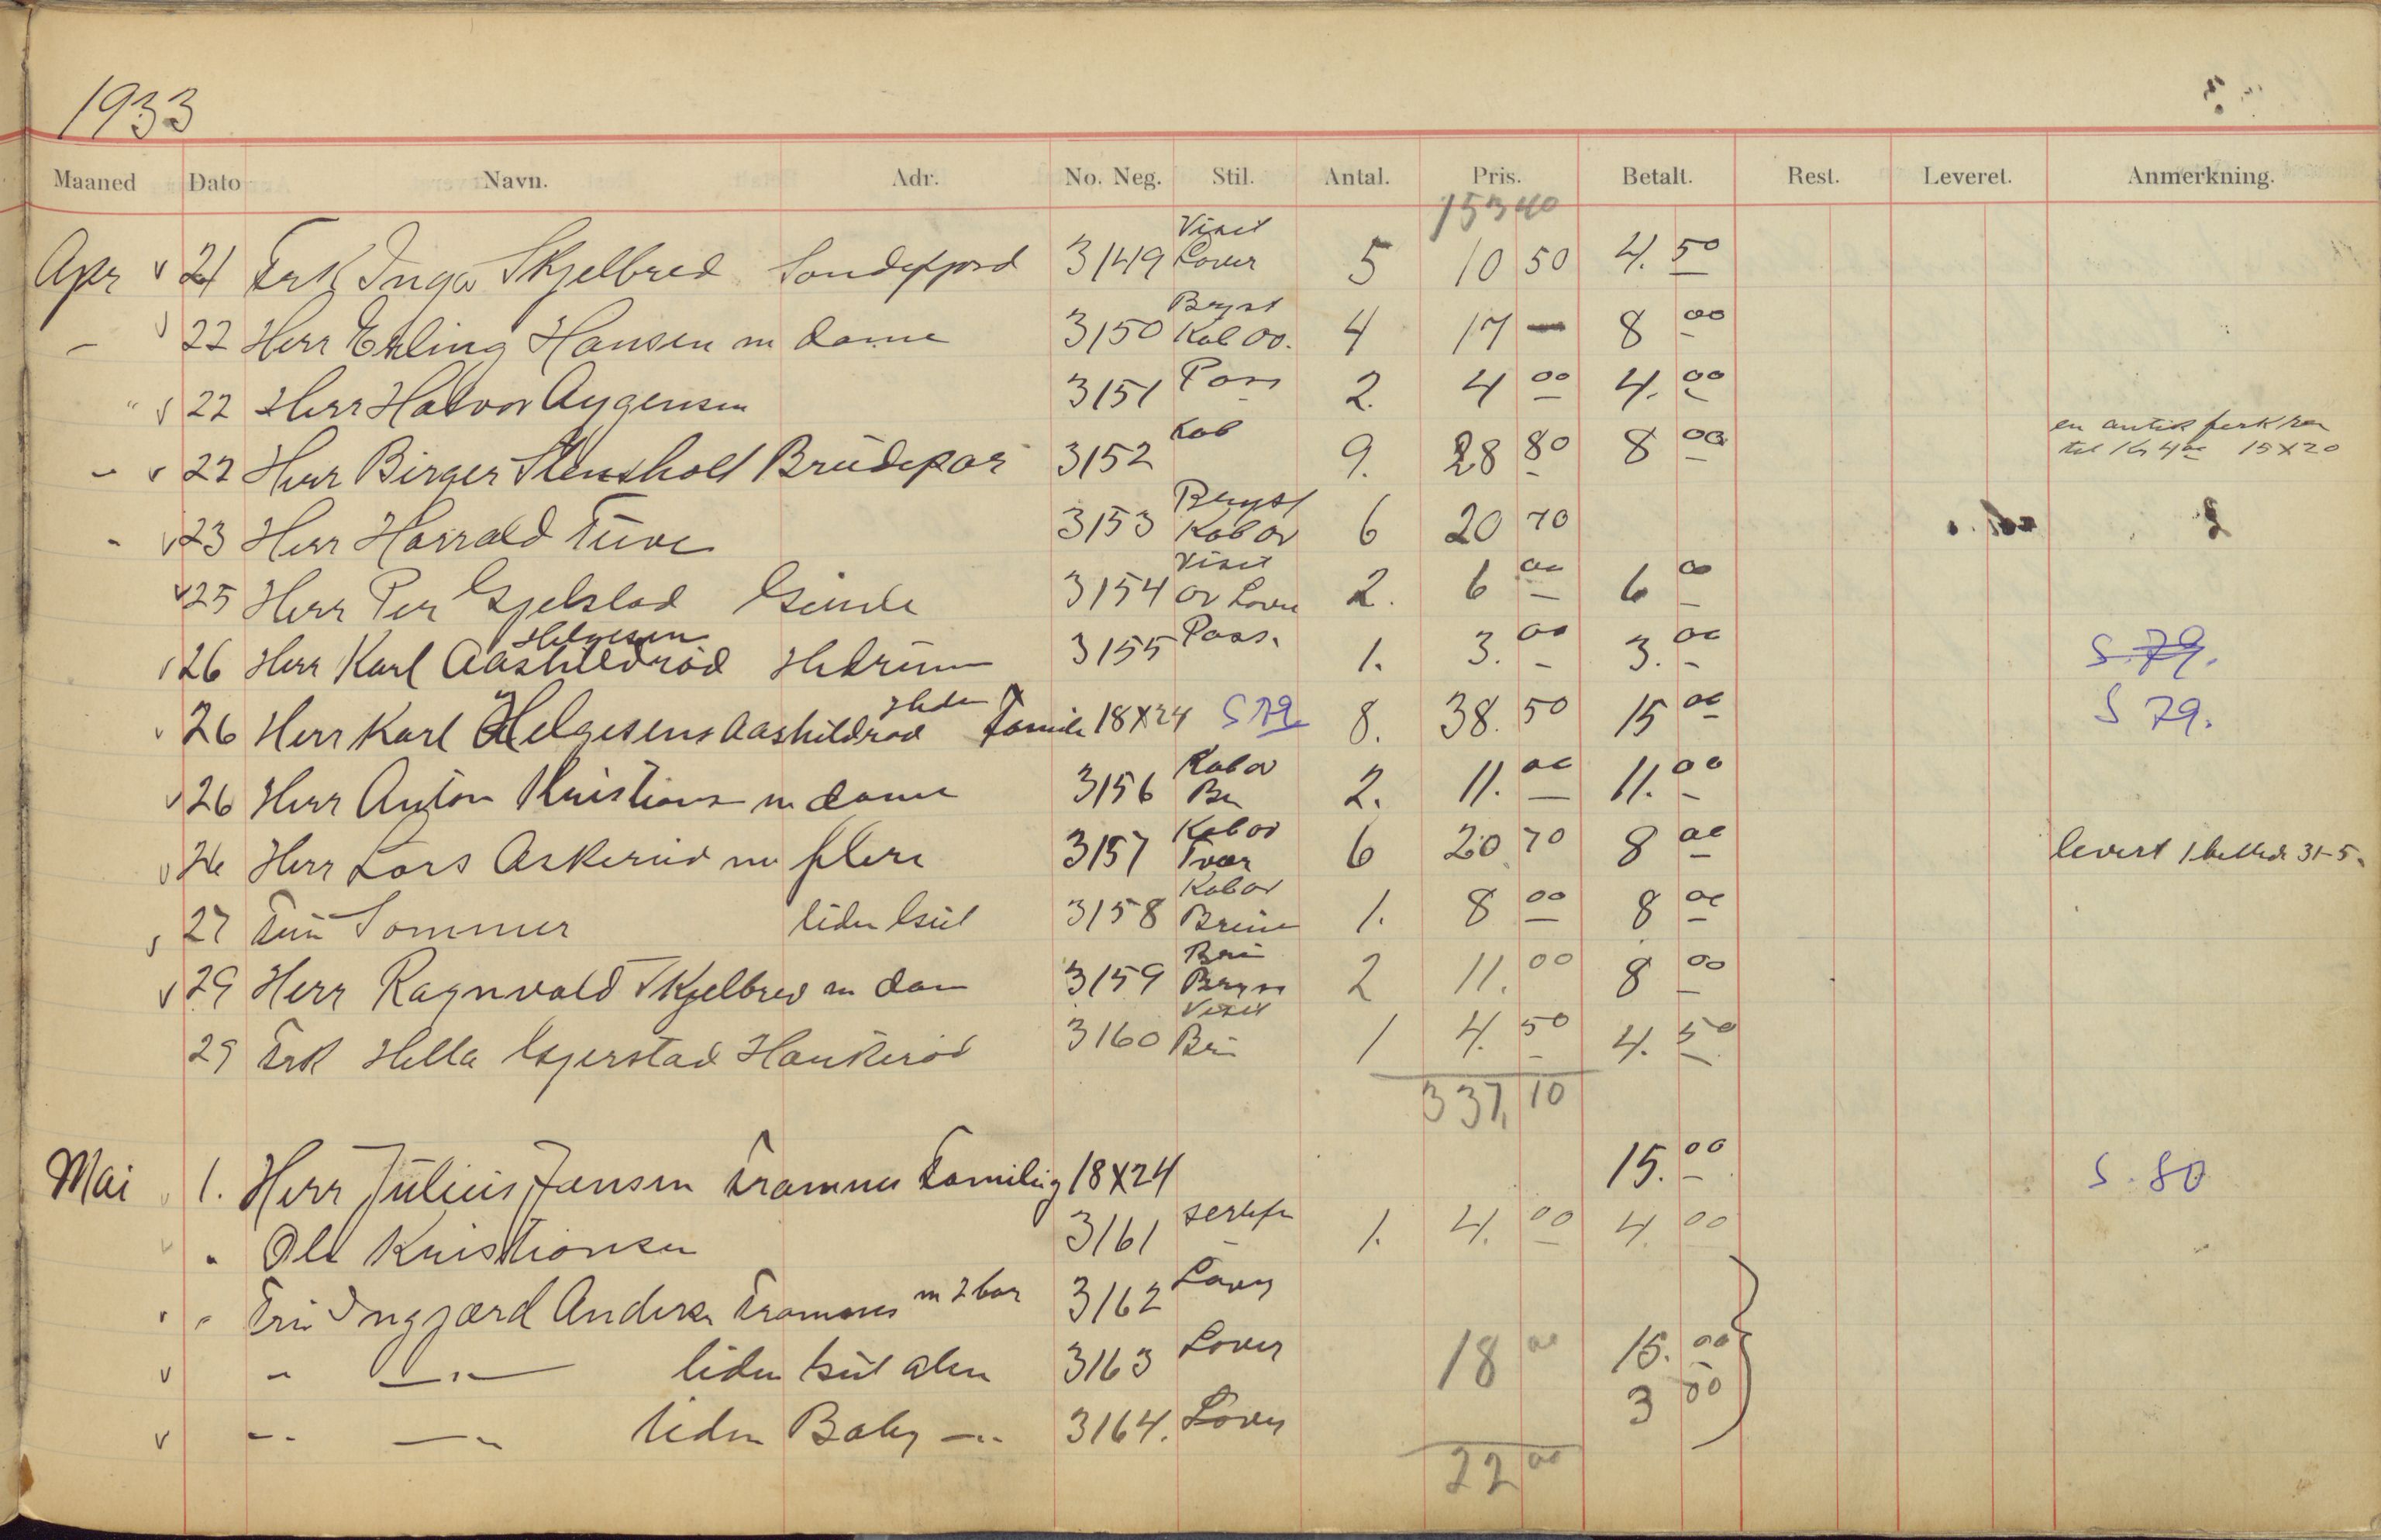 1933
Maaned Dato Navn. Adr. No. Neg. Stil. Antal. Pris. Betalt. Rest. Leveret. Anmerkning.
153 40
Apr v 21 Frk Inga Skjelbred Sandefjord 3149 Visit Lover 5 10 50 4. 50
– v 22 Herr Erling Hansen m dame 3150 Bryst Kab ov. 4 17 — 8 00
" v 22 Herr Halvor Aygensen 3151 Pass 2. 4 00 4. 00
– v 22 Herr Birger Stensholt Brüdepar 3152 Kab 9. 28 80 8 00 en antik
til Kr 4 00 15X20
- v 23 Herr Harrald Tüve 3153 Bryst Kab ov 6 20 70
v 25 Herr Per Gjelstad 3154 Visit ov Lover 2. 6 00 6 00
v 26 Herr Karl Helgesen Aashildröd Hedrum 3155 Pass. 1. 3. 00 3. 00 S. 79.
v 26 Herr Karl Helgesens Aashildrød Familie 18X24 S 79 8. 38. 50 15 00 S 79.
v 26 Herr Anton Kristians m dame 3156 Kab ov Br 2. 11. 00 11. 00
v 26 Herr Lars Askerud m flere 3157 Kab ov Tvær 6 20 70 8 00 levert 1 billede 31-5.
v 27 Frü Sommer liden Güt 3158 Kab ov 1. 8 00 8 00
v 29 Herr Ragnvald Skjelbred m dam 3159 Brü Bryst 2 11. 00 8 00
29 Frk Hella Gjerstad Haukeröd 3160 Visit Brü 1 4. 50 4. 50
337, 10
Mai 1. Herr Július Jansen Framnes Familieg 18X24 15. 00 S. 80
v " Ole Kristiansen 3161 1. 4. 00 4 00
" " Frü Inggjærd Anders Framnes m 2 bar 3162 Lover
v - -"- liden Güt alen 3163 Lover 18 00 15. 00
3 00
v -- -"- liden Baby -"- 3164. Lover
22 00